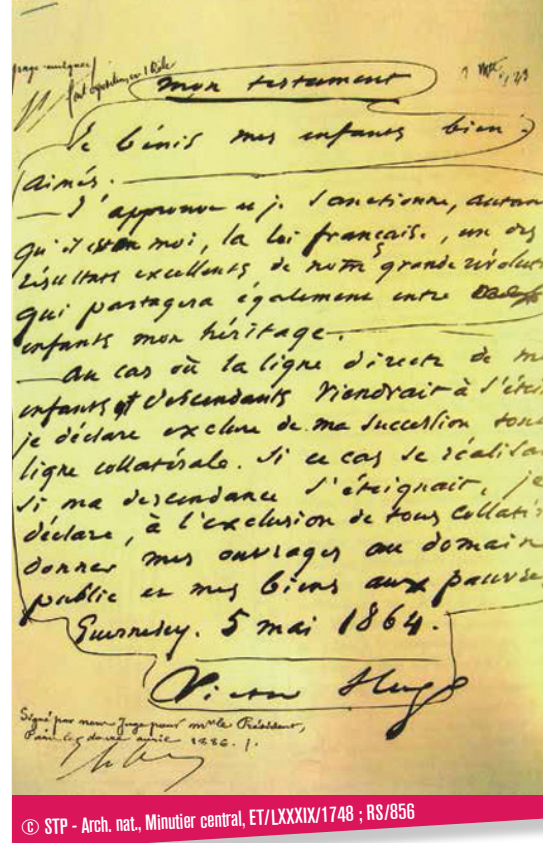 page unique
fait expédition, 1 Rôle
mon testament
Je bénis mes enfants bien
aimés.
— J'approuve et je sanctionne, autan
qu'il est en moi, la loi française, un des
résultats excellents de notre grande révoluti
qui partagera également entre
enfants mon héritage.
— au cas où la ligne directe de me
enfants et descendants viendrait à s'étei
je déclare exclure de ma succession toute
ligne collatérale. Si ce cas se réalisa
Si ma descendance s'éteignait, je
déclare, à l'exclusion de tous collatér
donner mes ouvrages au domaine
public et mes biens aux pauvres
Guernesey. 5 mai 1864.
Victor Hugo
Signé par nous Juge pour Mr le Président,
Paris le douze avril 1886. /.
© STP - Arch. nat., Minutier central, ET/LXXXIX/1748 ; RS/856